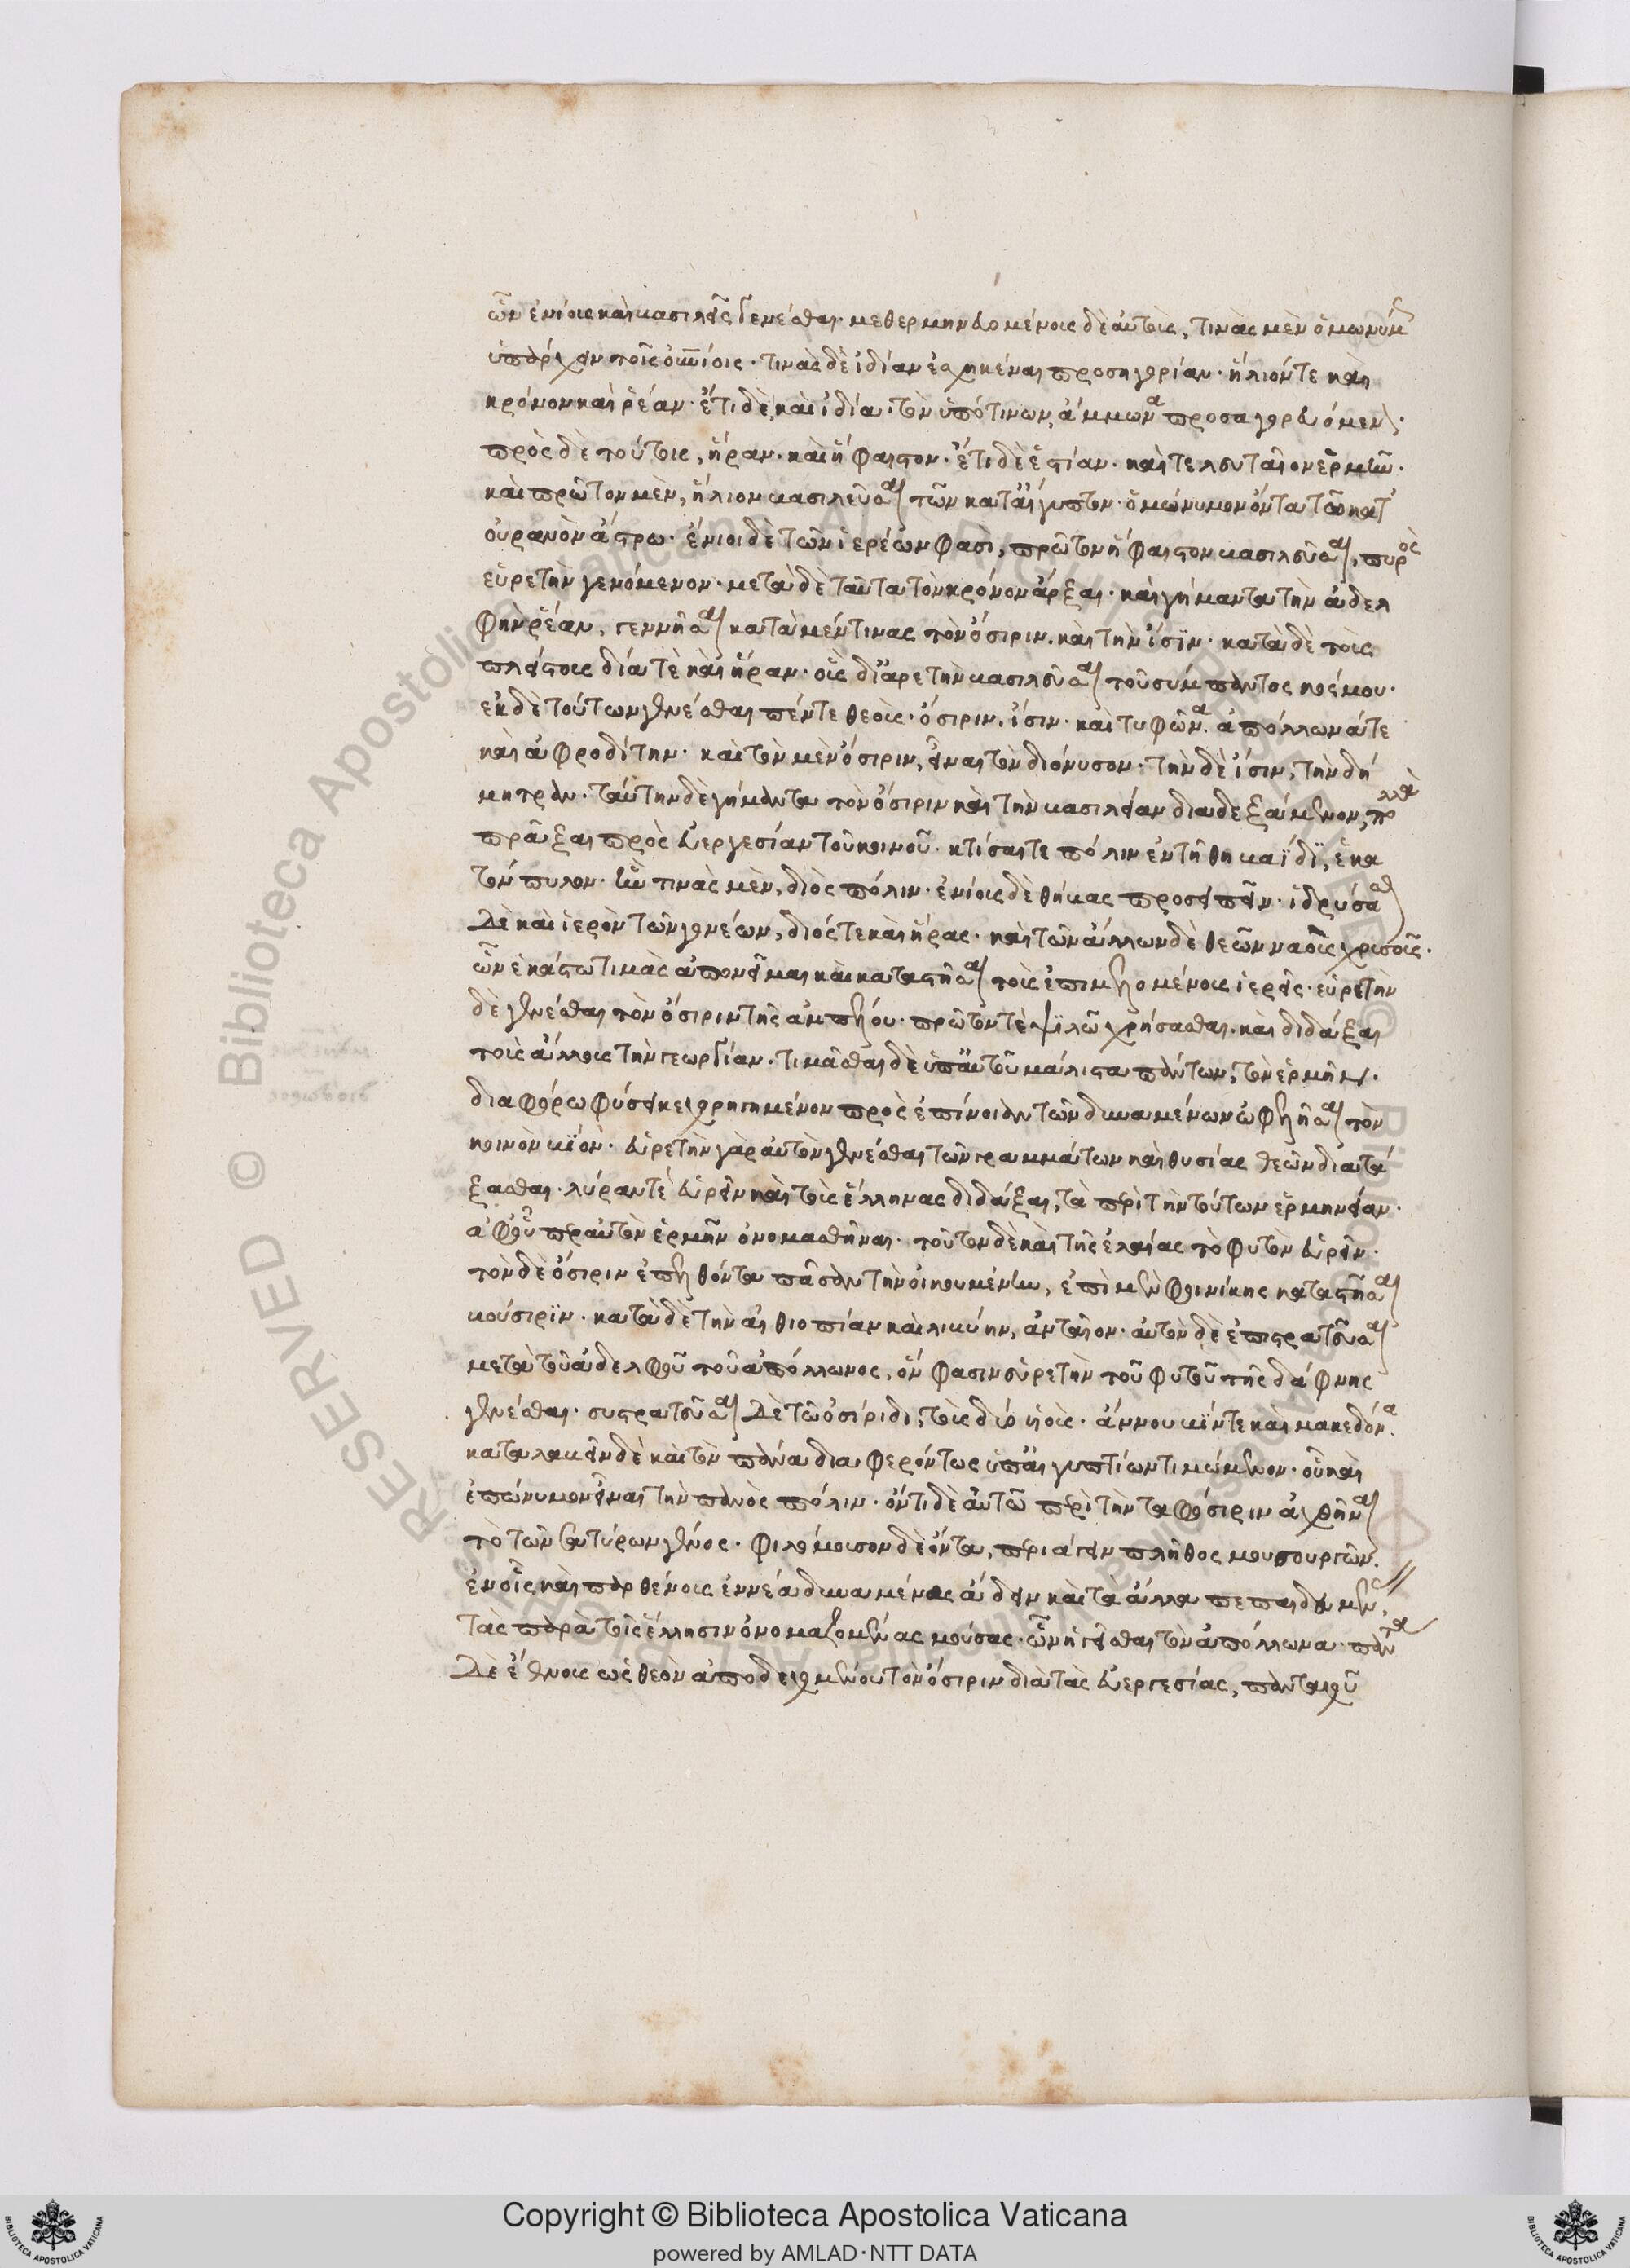 ὧν ἐνίους καὶ βασιλεῖς γενέσθαι· μεθερμηνευομένους δὲ αὐτοὺς, τινὰς μὲν ὁμωνύμ
ὑπάρχειν τοῖς οὐνίοις· τινὰς δὲ ἰδίαν ἐσχηκέναι προσηγορίαν· ἥλιόν τε καὶ
κρόνον καὶ ῥέαν· ἔτι δὲ, καὶ δία· τὸν ὑπό τινων, ἄμμωνα προσαγορευόμεν·
πρὸς δὲ τούτοις, ἥραν· καὶ ἥφαιστον· ἔτι δὲ ἑστίαν· καὶ τελευταῖον ἑρμῆν·
καὶ πρῶτον μὲν, ἥλιον βασιλεῦσαι τῶν κατ' αἴγυπτον· ὁμώνυμον ὄντα τῶ κατ'
οὐρανὸν ἄστρω· ἔνιοι δὲ τῶν ἱερέων φασὶ, πρῶτον ἥφαιστον βασιλεῦσαι, πυρὸς
εὑρετὴν γενόμενον· μετὰ δὲ ταῦτα τὸν κρόνον ἄρξαι· καὶ γήμαντα τὴν ἀδελ
φὴν ῥέαν, γεννῆσαι κατὰ μέν τινας τὸν ὄσιριν· καὶ τὴν ἶσϊν· κατὰ δὲ τοὺς
πλείστους δία τὲ καὶ ἥραν· οὓς δι' ἀρετὴν βασιλεῦσαι τοῦ σύμπαντος κόσμου·
ἐκ δὲ τούτων γενέσθαι πέντε θεοὺς· ὄσιριν· ἶσιν· καὶ τυφῶνα· ἀπόλλωνά τε
καὶ ἀφροδίτην· καὶ τὸν μὲν ὄσιριν, εἶναι τὸν διόνυσον· τὴν δὲ ἶσιν, τὴν δή
μητραν· ταύτην δὲ γήμαντα τὸν ὄσιριν καὶ τὴν βασιλείαν διαδεξάμενον, πολλὰ
πρᾶξαι πρὸς εὐεργεσίαν τοῦ κοινοῦ· κτίσαι τε πόλιν ἐν τῇ θηβαΐδϊ, ἑκα
τόν πυλον· ἣν τινὰς μὲν, διὸς πόλιν· ἐνίους δὲ θήβας προσειπεῖν· ἱδρύσασθαι
δὲ καὶ ἱερὸν τῶν γονέων, διός τε καὶ ἥρας· καὶ τῶν ἄλλων δὲ θεῶν ναοὺς χρυσοῦς·
ὧν ἑκάστω τιμὰς ἀπονεῖμαι καὶ καταστῆσαι τοὺς ἐπιμελομένους ἱερεῖς· εὑρετὴν
δὲ γενέσθαι τὸν ὄσιριν τῆς ἀμπέλου· πρῶτόν τὲ ψϊλῶ χρήσασθαι· καὶ διδάξαι
τοὺς ἄλλους τὴν γεωργίαν· τιμᾶσθαι δὲ ὑπ' αὐτοῦ μάλιστα πάντων, τὸν ἑρμῆν·
διαφόρω φύσει κεχρημένον πρὸς ἐπίνοιαν τῶν δυναμένων ὠφελῆσαι τὸν
κοινὸν βϊόν· εὑρετὴν γὰρ αὐτὸν γενέσθαι τῶν γραμμάτων καὶ θυσίας θεῶν διατά
ξασθαι· λύραν τὲ εὑρεῖν καὶ τοὺς ἕλληνας διδάξαι, τὰ περὶ τὴν τούτων ἑρμηνείαν·
ἀφ' οὗ περ αὐτὸν ἑρμῆν ὀνομασθῆναι· τοῦτον δὲ καὶ τῆς ἐλαίας τὸ φυτὸν εὑρεῖν·
τὸν δὲ ὄσιριν ἐπελθόντα πᾶσαν τὴν οἰκουμένην, ἐπὶ μὲν φοινίκης καταστῆσαι
βούσιρϊν· κατὰ δὲ τὴν αἰθιοπίαν καὶ λιβύην, ἀνταῖον· αὐτὸν δὲ ἐπιστρατεῦσαι
μετὰ τοῦ ἀδελφοῦ τοῦ ἀπόλλωνος, ὅν φασιν εὑρετὴν τοῦ φυτοῦ τῆς δάφνης
γενέσθαι· συστρατεῦσαι δὲ τῶ ὀσίριδι, τοὺς δύο υἱοὺς· ἄννουβίν τε καὶ μακεδόνα·
καταλαβεῖν δὲ καὶ τὸν πᾶνα διαφερόντως ὑπ' αἰγυπτίων τιμώμενον· οὗ καὶ
ἐπώνυμον εἶναι τὴν πανὸς πόλιν· ὄντι δὲ αὐτῶ περὶ τὴν ταφόσιριν ἀχθῆναι
τὸ τῶν σατύρων γένος· φιλόμουσον δὲ ὄντα, περιάγειν πλῆθος μουσουργῶν·
ἐν οἷς καὶ παρθένους ἐννέα δυναμένας ἄδειν καὶ τὰ ἄλλα πεπαιδευμέν·
τὰς παρὰ τοῖς ἕλλησιν ὀνομαζομένας μούσας· ὧν ἡγεῖσθαι τὸν ἀπόλλωνα· πάντα
δὲ ἔθνους ὡς θεὸν ἀποδεχομένου τὸν ὄσιριν διὰ τὰς εὐεργεσίας, πανταχοῦ
Copyright © Biblioteca Apostolica Vaticana
powered by AMLAD·NTT DATA